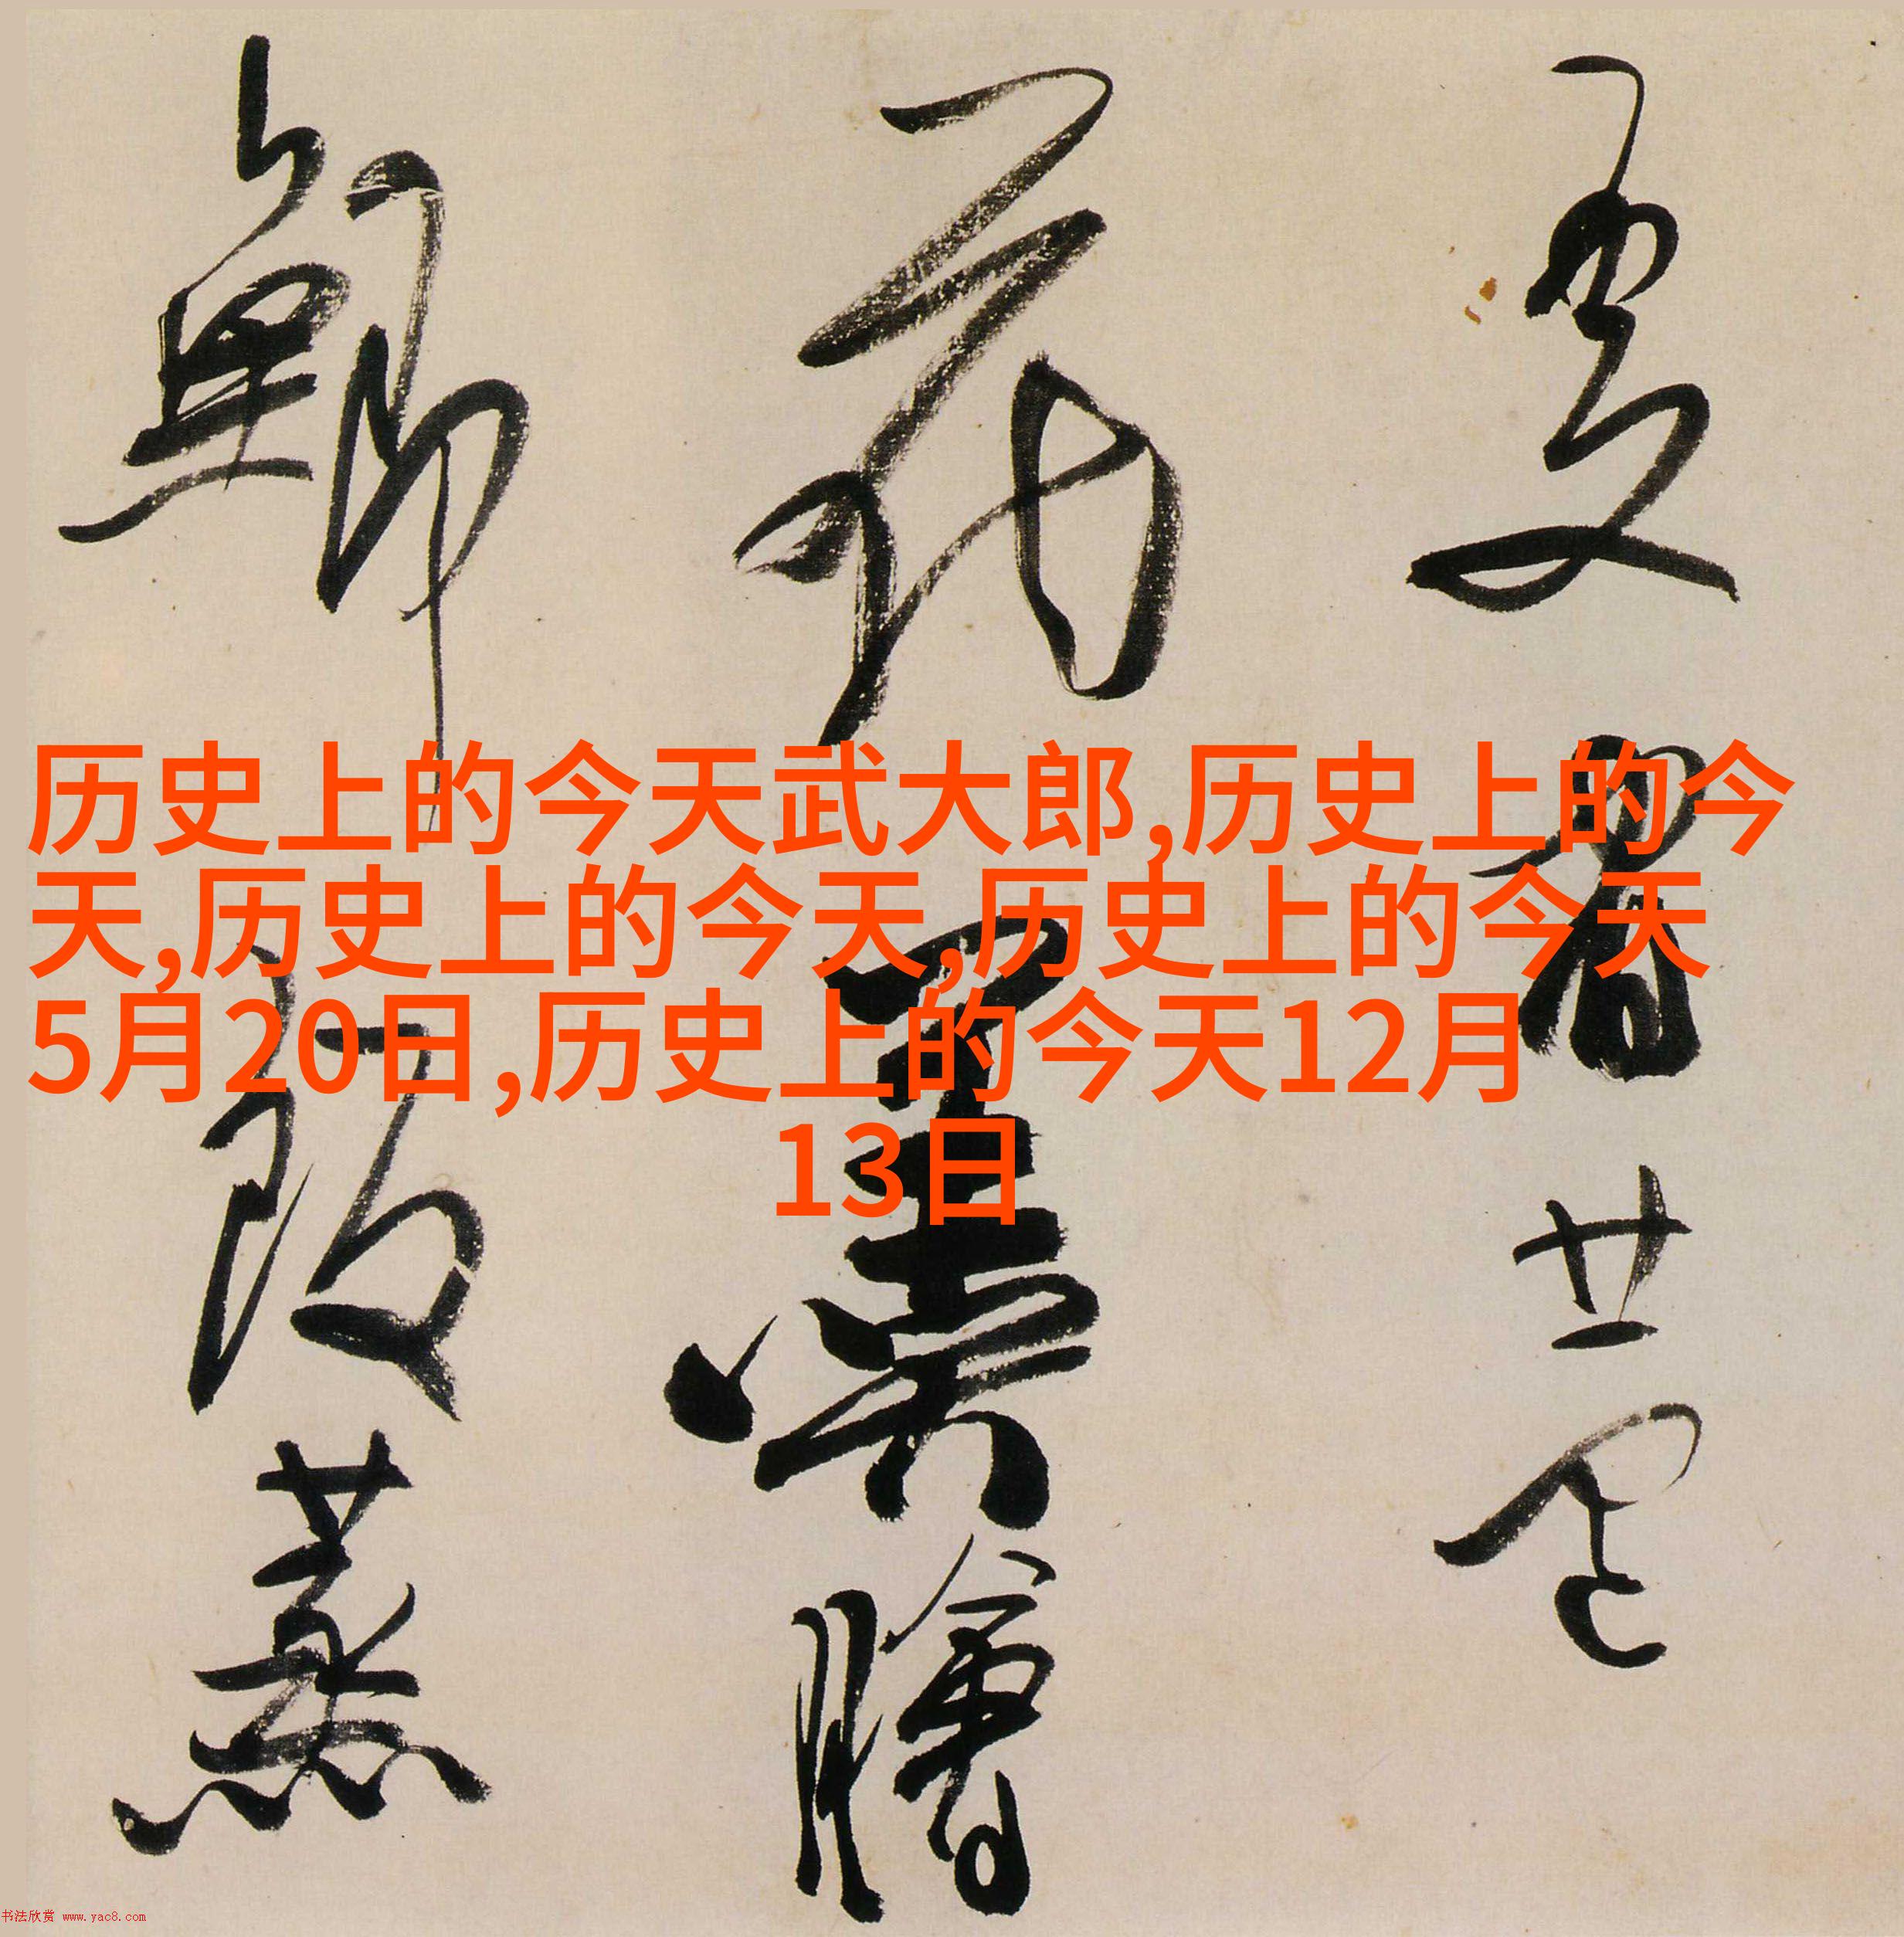 羹膾
飯蒸
历史上的今天武大郎,历史上的今
天,历史上的今天,历史上的今天
5月20日,历史上的今天12月
13日
书法欣赏 www.yac8.com